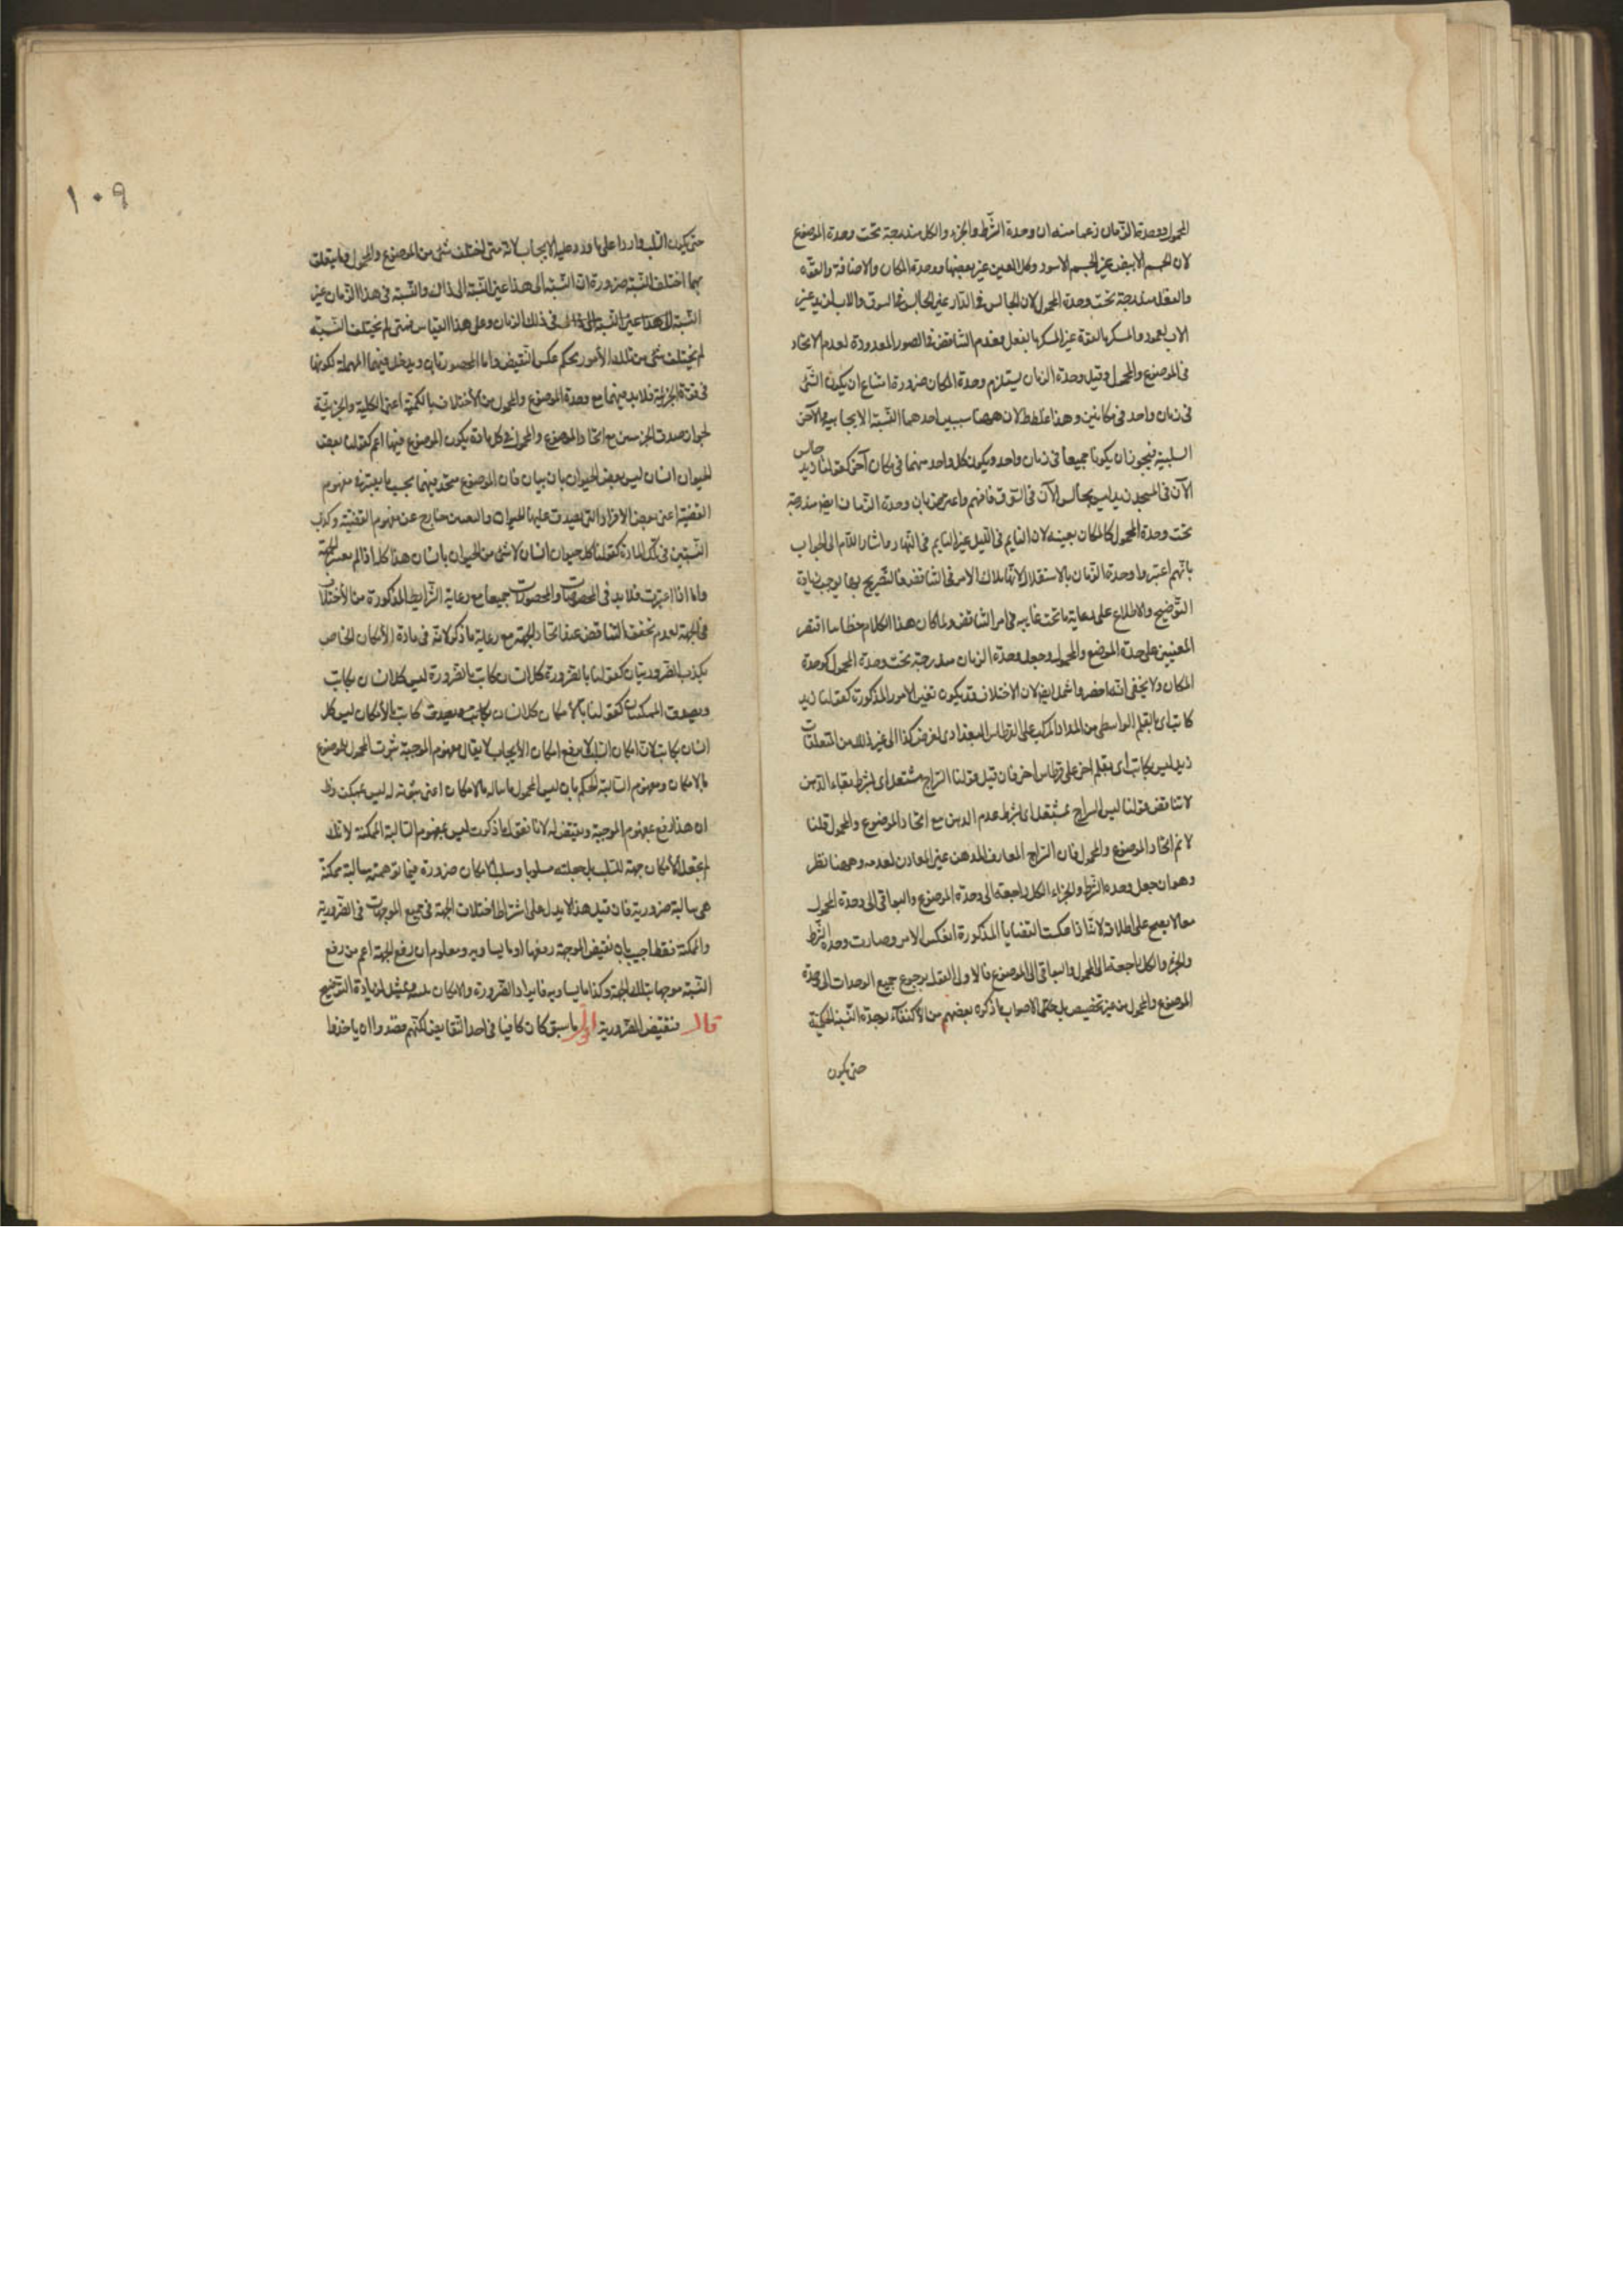 المحمول ووحدة الزمان زعما منه ان وحدة الشرط والجزء والكل مندرجة تحت وحدة الموضوع
لان الجسم الابيض غير الجسم الاسود وكل العين غير بعضها ووحدة المكان والاضافة والقوة
والفعل مندرجة تحت وحدة المحمول لان الجالس في الدار غير الجالس في السوق والاب لزيد غير
الاب لعمرو والمسكر بالقوة غير المسكر بالفعل فعدم التناقض في الصور المعدودة لعدم الاتحاد
في الموضوع والمحمول وقيل وحدة الزمان يستلزم وحدة المكان ضرورة امتناع ان يكون الشئ
في زمان واحد في مكانين وهذا غلط لان ههنا سببين احدهما النسبة الايجابية والآخر
السلبية فيجوز ان يكونا جميعا في زمان واحد ويكون كل واحد منهما في مكان آخر كقولنا زيد جالس
الآن في المسجد زيد ليس بجالس الآن في السوق فافهم واعترض بان وحدة الزمان ايضا مندرجة
تحت وحدة المحمول كالمكان بعينه لان النايم في الليل غير النايم في النهار واشار الى الجواب
بانهم اعتبروا وحدة الزمان بالاستقلال لانها ملاك الامر في التناقض فالتصريح بها يوجب زيادة
التوضيح والاطلاع على رعاية ما تحت غايب في امر التناقض ولما كان هذا الكلام خطابيا اقتصر
المعنيين على وحدة الموضع والمحمول وجعل وحدة الزمان مندرجة تحت وحدة المحمول كوحدة
المكان ولا يخفى انه اخصر واشمل ايضا لان الاختلاف قد يكون بغير الامور المذكورة كقولنا زيد
كاتب اى بالقلم الواسطى من المداد المركب على القرطاس البغدادى لغرض كذا الى غير ذلك من المتعلقات
زيد ليس بكاتب اى بقلم اخر على قرطاس اخر فان قيل قولنا السراج مشتعل اى بشرط بقاء الدهن
لا تناقض قولنا ليس السراج بمشتعل اى بشرط عدم الدهن مع اتحاد الموضوع والمحمول قلنا
لا نم اتحاد الموضوع والمحمول فان السراج المقارن للدهن غير المقارن لعدمه وههنا نظر
وهو ان جعل وحدة الشرط والجزاء الكل راجعة الى وحدة الموضوع والبواقى الى وحدة المحمول
مما لا يصح على اطلاقه لانا اذا عكسنا القضايا المذكورة انعكس الامر وصارت وحدة الشرط
والجزء والكل راجعة الى المحمول والبواقى الى الموضوع فالاولى القول برجوع جميع الوحدات الى وحدة
الموضوع والمحمول من غير تخصيص بل الاصواب ما ذكره بعضهم من الاكتفاء بوحدة النسبة الحكمية
حتى يكون
١٠٩
حتى يكون السلب واردا على ما ورد عليه الايجاب لانه متى اختلف شئ من الموضوع والمحمول وما يتعلق
بهما اختلف النسبة ضرورة ان النسبة الى هذا غير النسبة الى ذاك والنسبة في هذا الزمان غير
النسبة في ذلك الزمان وعلى هذا القياس فمتى لم يختلف النسبة
لم يختلف شئ من تلك الأمور بحكم عكس النقيض واما المحصورتان ويدخل فيهما المهملة لكونها
في قوة الجزئية فلا بد فيهما مع وحدة الموضوع والمحمول من الأختلاف بالكمية اعنى الكلية والجزئية
لجواز صدق الجزئيتين مع اتحاد الموضوع والمحمول في كل مادة يكون الموضوع فيها اعم كقولنا بعض
الحيوان انسان ليس بعض الحيوان بانسان فان الموضوع متحد فيهما بحسب ما يعتبر في مفهوم
القضية اعنى بعض الافراد التى يصدق عليها الحيوان والتعيين خارج عن مفهوم القضية وكذب
الكليتين في تلك المادة كقولنا كل حيوان انسان لا شئ من الحيوان بانسان هذا كله اذا لم يعتبر الجهة
واما اذا اعتبرت فلا بد في المخصوصات والمحصورات جميعا مع رعاية الشرايط المذكورة من الأختلاف
في الجهة لعدم تحقق التناقض عند اتحاد الجهة مع رعاية ما ذكر لانه في مادة الأمكان الخاص
يكذب الضروريتان كقولنا بالضرورة كل انسان كاتب بالضرورة ليس كل انسان بكاتب
ويصدق الممكنتان كقولنا بالأمكان كل انسان كاتب بالأمكان ليس كل
انسان بكاتب لان امكان السلب لا يرفع امكان الأيجاب لا يقال مفهوم الموجبة ثبوت المحمول للموضوع
بالامكان ومفهوم السالبة الحكم بان ليس المحمول ثابتا له بالامكان اعنى ثبوته له ليس بممكن وظ
ان هذا رفع لمفهوم الموجبة ونقيض له لانا نقول ما ذكرت ليس بمفهوم السالبة الممكنة لانك
لم تجعل الأمكان جهة للسلب بل جعلته مسلوبا وسلب الامكان ضرورة فيما توهمته سالبة ممكنة
هى سالبة ضرورية فان قيل هذا لا يدل على اشتراط اختلاف الجهة في جميع الموجهات بل في الضرورية
والممكنة فقط اجيب بان نقيض الموجهة رفعها او ما يساويه ومعلوم ان رفع الجهة اعم من رفع
النسبة موجها بتلك الجهة وكذا ما يساويه فايراد الضرورة والامكان تمثيل لزيادة التوضيح
قال فنقيض الضرورية اقول ما سبق كان كافيا في اخذ النقايض لكنهم قصدوا ان ياخذوا